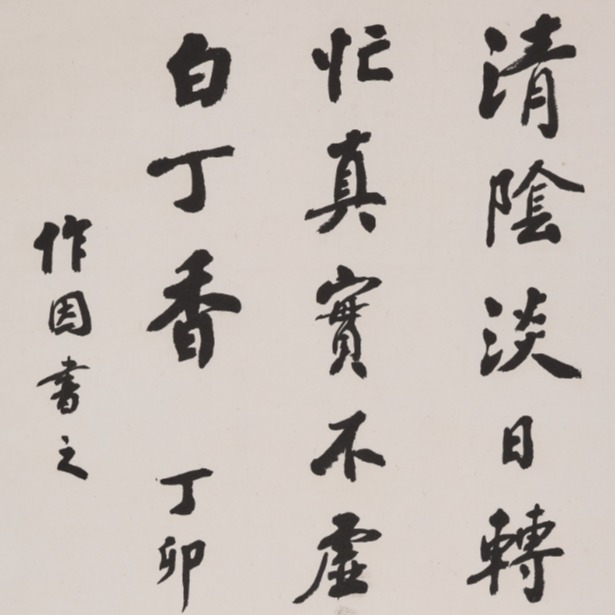 清陰淡日轉
忙真實不虛
白丁香 丁卯
作因書之